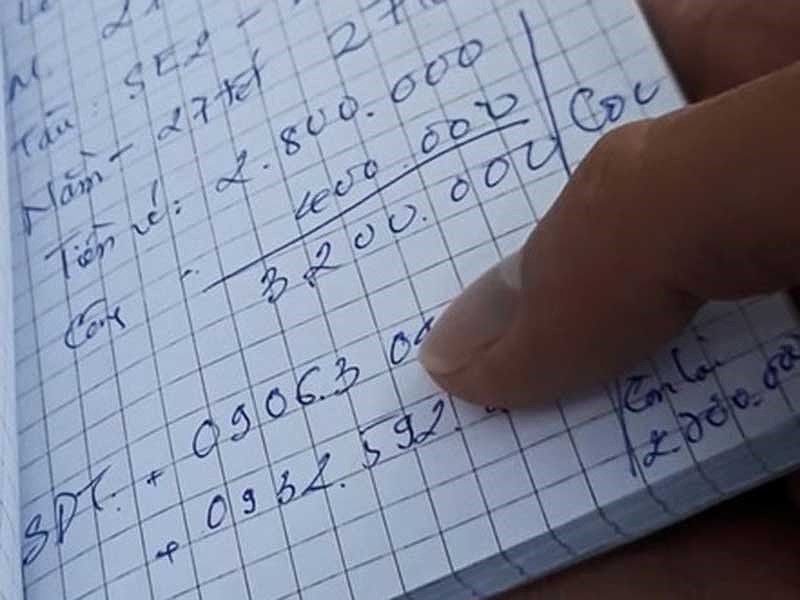 Tàu: SE2 -
Nằm - 27tết
Tiền vé: 2.800.000
400.000
Cộng 3200.000
SĐT. + 0906.3
+ 0932.592.
Còn lại
2.700.000